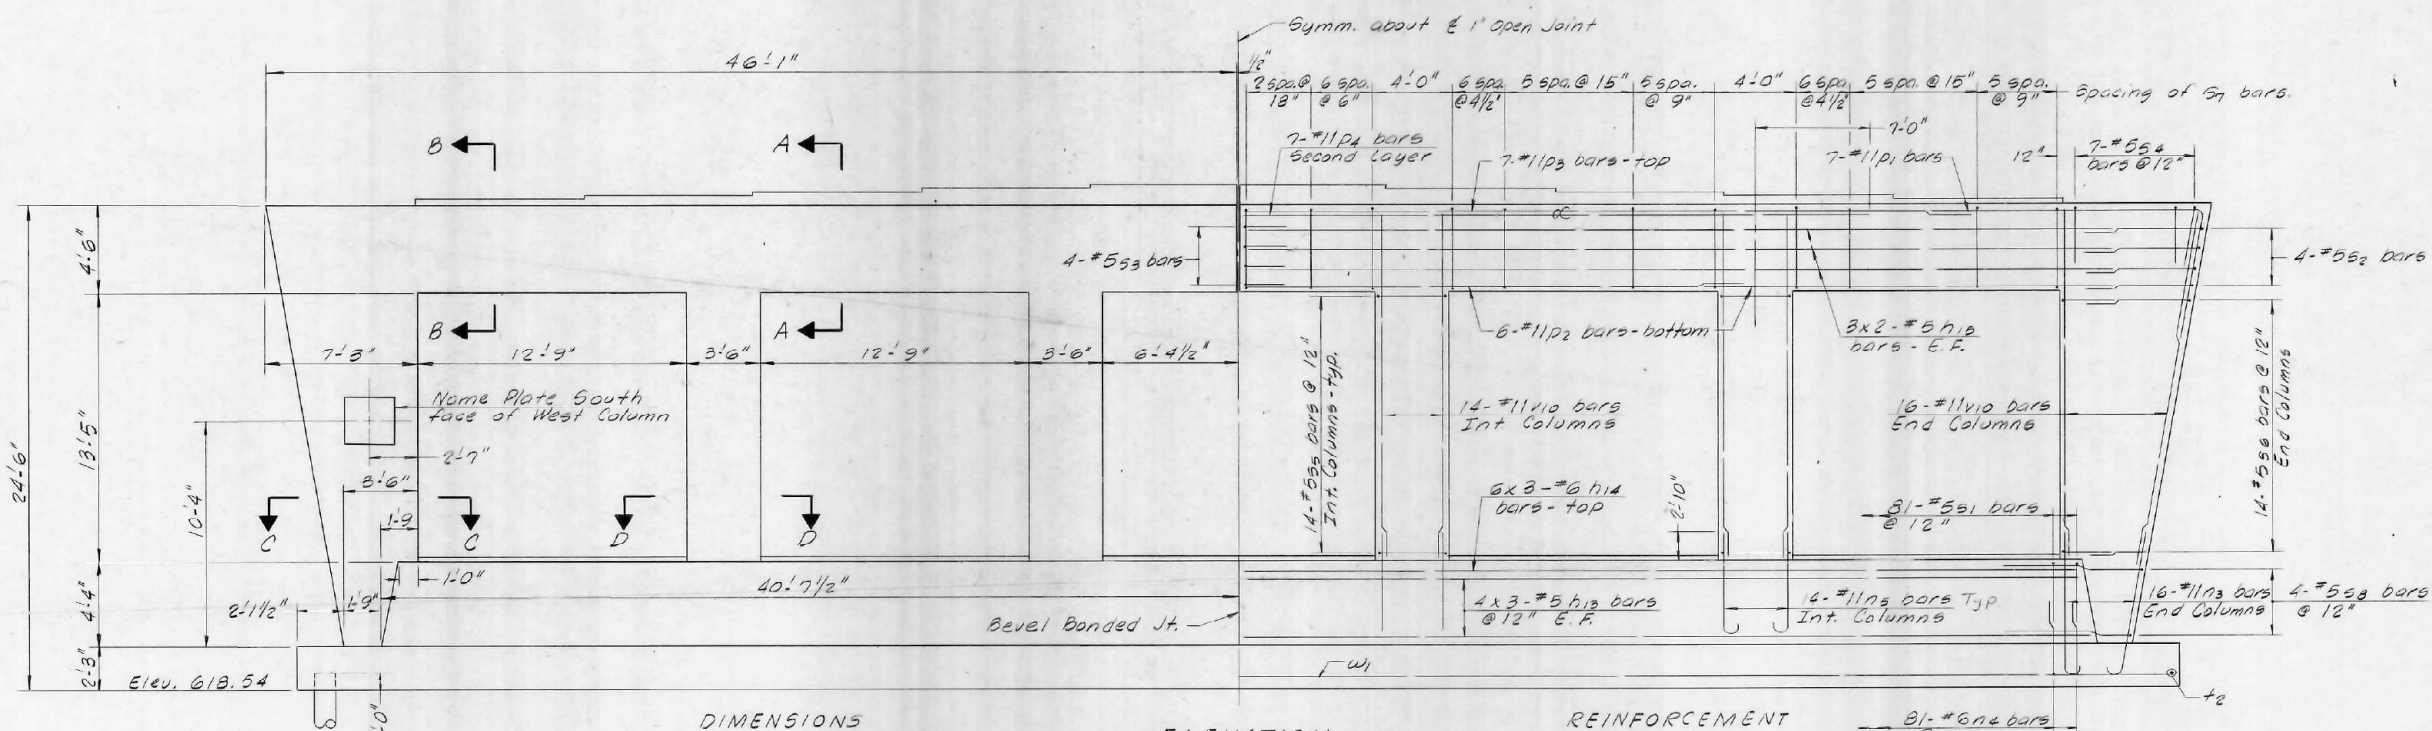 Symm. about ℄ 1" Open Joint
46'-1"
1/2"
2 spa. @ 18"
6 spa. @ 6"
4'-0"
6 spa. @ 4 1/2"
5 spa. @ 15"
5 spa. @ 9"
4'-0"
6 spa. @ 4 1/2"
5 spa. @ 15"
5 spa. @ 9"
Spacing of S7 bars.
B
A
7-#11p4 bars
Second Layer
7-#11p3 bars-top
7'-0"
7-#11p1 bars
12"
7-#5s4
bars @ 12"
4'-6"
4-#5s3 bars
4-#5s2 bars
B
A
7'-3"
12'-9"
3'-6"
12'-9"
3'-6"
6'-4 1/2"
6-#11p2 bars-bottom
3x2-#5 h15
bars - E.F.
Name Plate South
face of West Column
2'-7"
24'-6"
13'-5"
10'-4"
3'-6"
1'-9
C
C
D
D
14-#5s5 bars @ 12"
Int. Columns-typ.
14-#11v10 bars
Int Columns
16-#11v10 bars
End Columns
14-#5s6 bars @ 12"
End Columns
6x3-#6 h14
bars-top
2'-10"
81-#5s1 bars
@ 12"
1'-0"
40'-7 1/2"
4'-4"
2'-1 1/2"
1'-9"
Bevel Bonded Jt.
4x3-#5 h13 bars
@ 12" E.F.
14-#11n5 bars Typ.
Int. Columns
16-#11n3 bars
End Columns
4-#5s8 bars
@ 12"
2'-3"
Elev. 618.54
w1
t2
DIMENSIONS
REINFORCEMENT
81-#6n4 bars